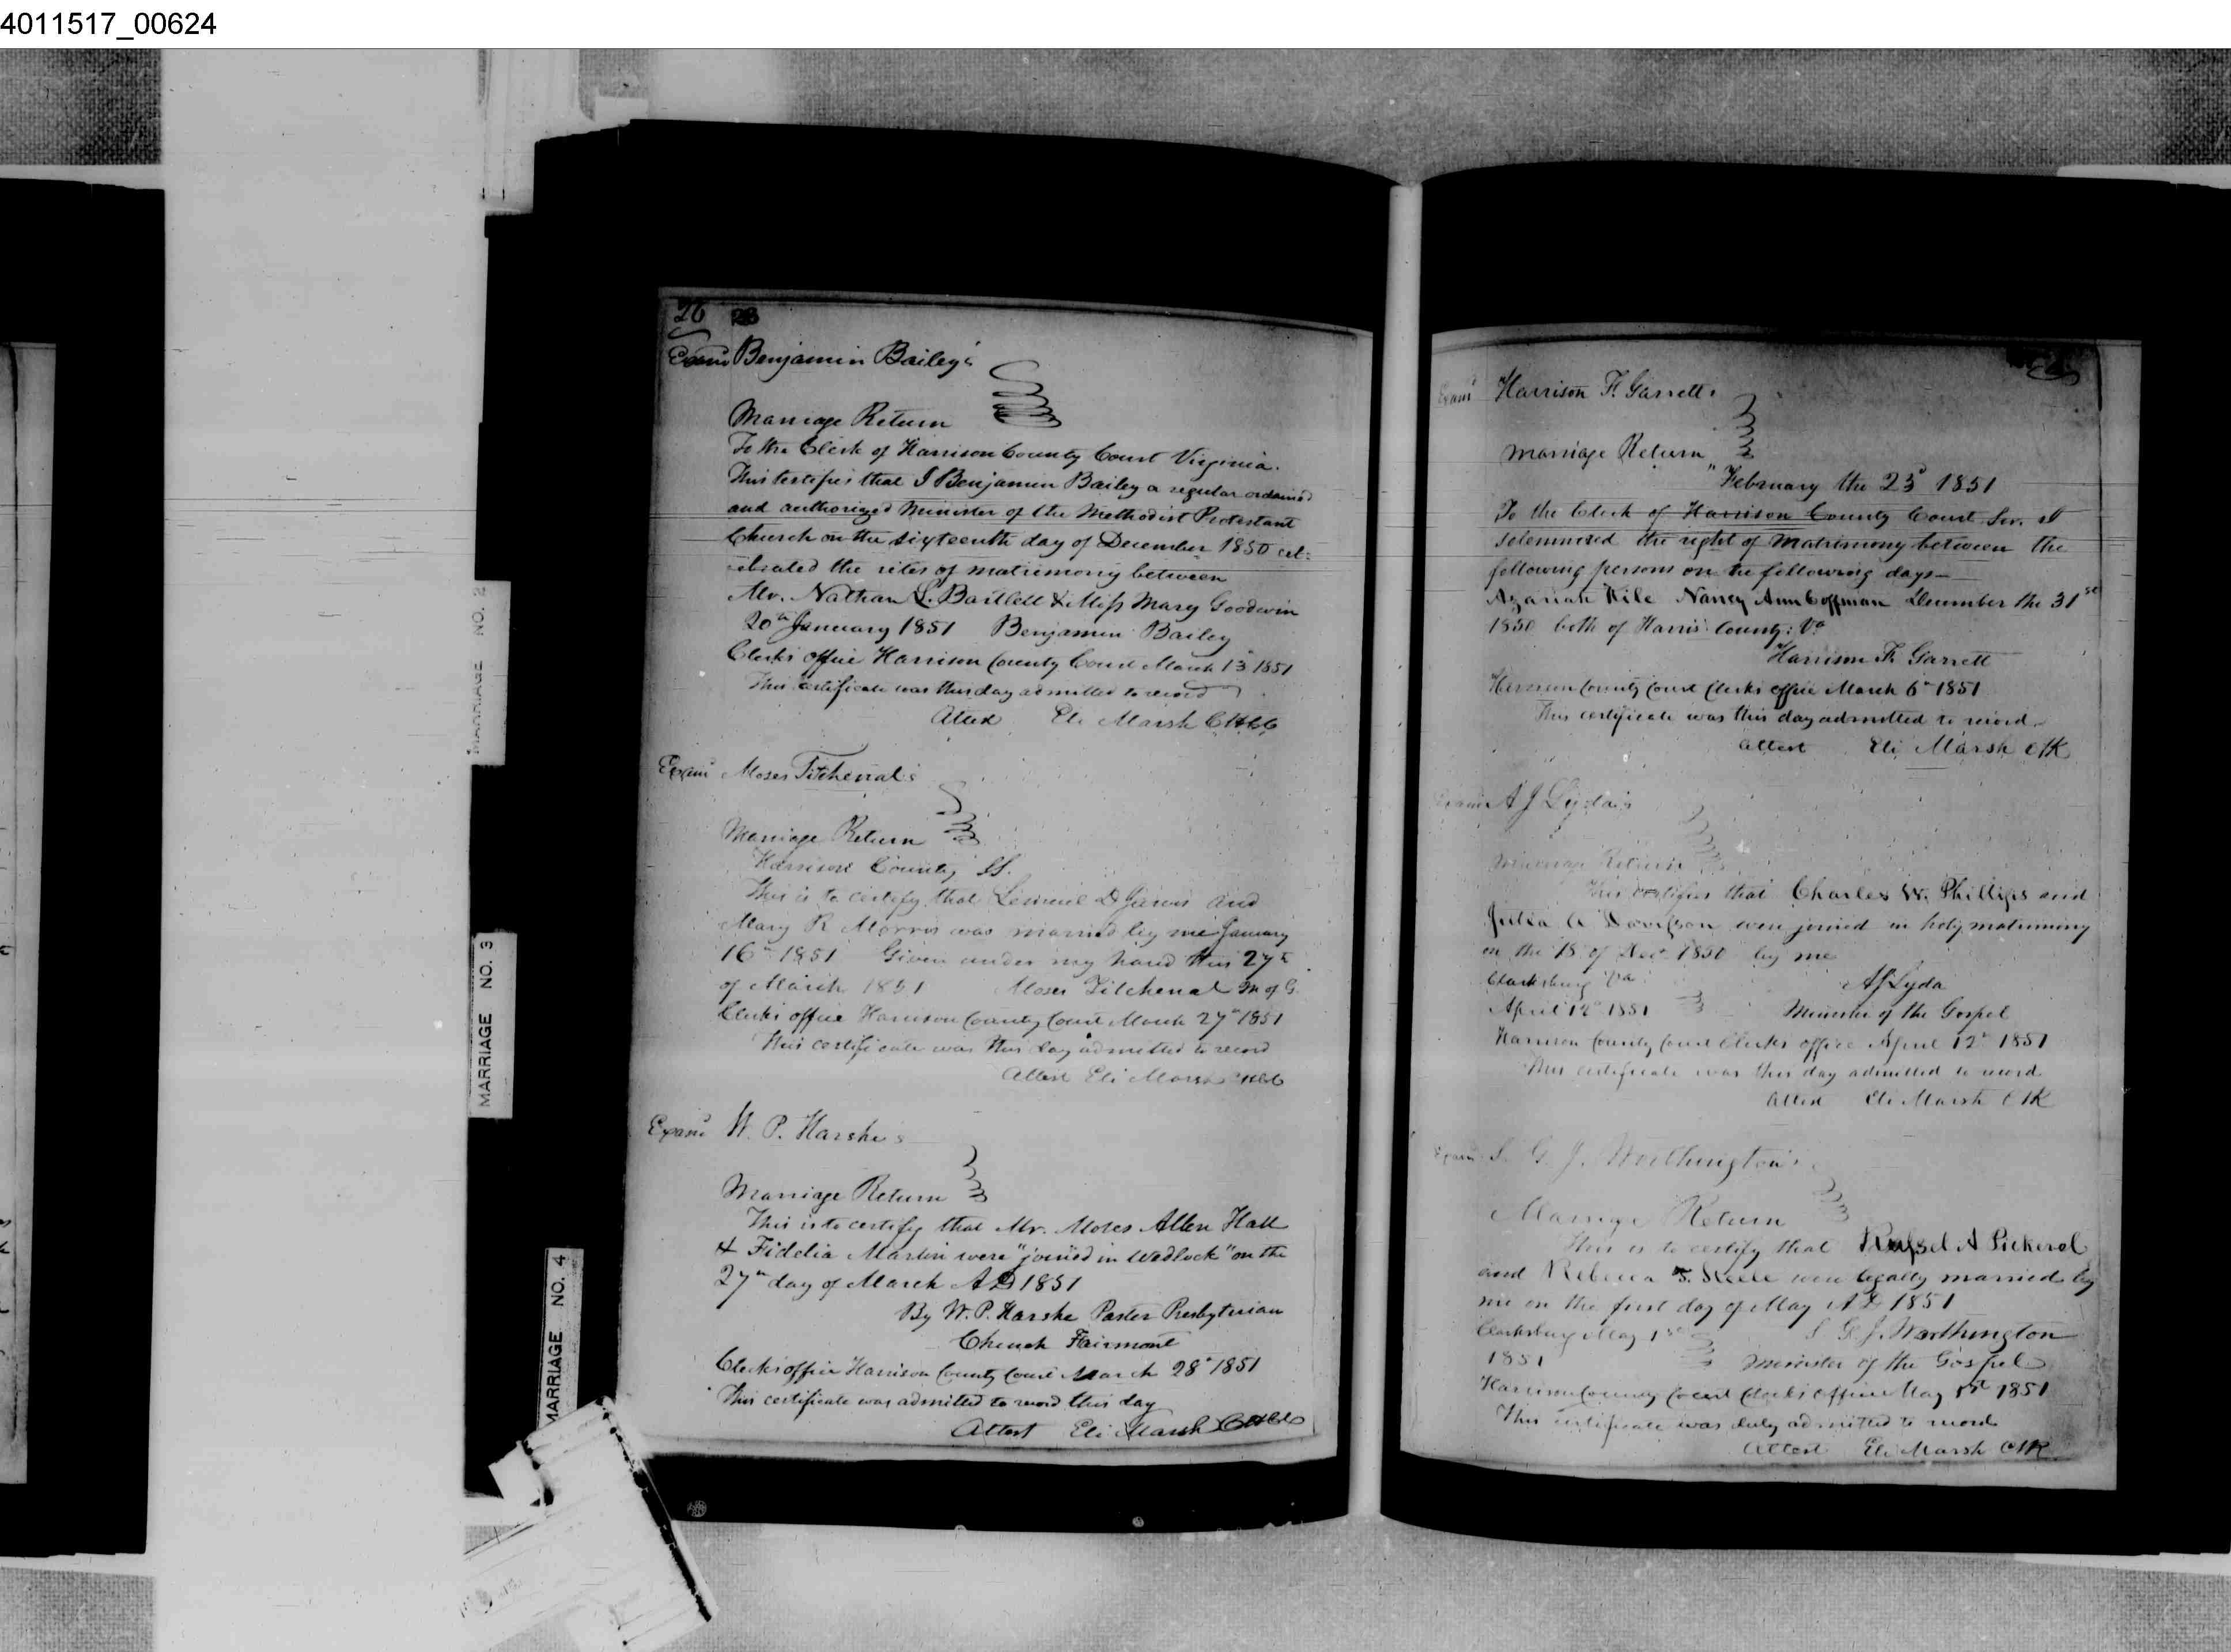 4011517_00624
MARRIAGE NO. 2
MARRIAGE NO. 3
MARRIAGE NO. 4
26 28
Exam^d Benjamin Bailey's
Marriage Return
To the Clerk of Harrison County Court Virginia.
This testifies that I Benjamin Bailey a regular ordained
and authorized Minister of the Methodist Protestant
Church on the sixteenth day of December 1850 cel:
ebrated the rites of matrimony between
Mr. Nathan L. Bartlett & Miss Mary Goodwin
20th January 1851 Benjamin Bailey
Clerks office Harrison County Court March 13 1851
This certificate was this day admitted to record
Attest Eli Marsh CHCC
Exam^d Moses Titchenal's
Marriage Return
Harrison County SS.
This is to certify that Lemuel D Jarvis and
Mary R Morris was married by me January
16th 1851 Given under my hand this 27th
of March 1851 Moses Titchenal M of G.
Clerks office Harrison County Court March 27th 1851
This certificate was this day admitted to record
Attest Eli Marsh CHCC
Exam^d W. P. Harshe's
Marriage Return
This is to certify that Mr. Moses Allen Hall
& Fidelia Martin were "joined in Wedlock" on the
27th day of March AD 1851
By W. P. Harshe Paster Presbyterian
Church Fairmont
Clerks office Harrison County Court March 28th 1851
This certificate was admitted to record this day
Attest Eli Marsh CHCC
Exam^d Harrison F. Garrett's
Marriage Return
"February the 23d 1851
To the Clerk of Harrison County Court Sir. I
solemnized the right of Matrimony between the
following persons on the following days—
Azariah Kile Nancy Ann Coffman December the 31st
1850 both of Harris: County: Va
Harrison F. Garrett
Harrison County Court Clerks office March 6th 1851
This certificate was this day admitted to record
Attest Eli Marsh Clk
Exam^d A J Lyda's
Marriage Return
This certifies that Charles W. Phillips and
Julia A Davisson were joined in holy matrimony
on the 18 of Dec 1850 by me
Clarksburg Va A J Lyda
April 12th 1851 Minister of the Gospel
Harrison County Court Clerks office April 12th 1851
This certificate was this day admitted to record
Attest Eli Marsh Clk
Exam^d S. G. J. Worthington's
Marriage Return
This is to certify that A Pickerel
and Rebecca S. Steele were legally married by
me on the first day of May A D 1851
Clarksburg May 1st S G. J. Worthington
1851 Minister of the Gospel
Harrison County Court Clerks office May 1851
This certificate was duly admitted to record
Attest Eli Marsh Clk